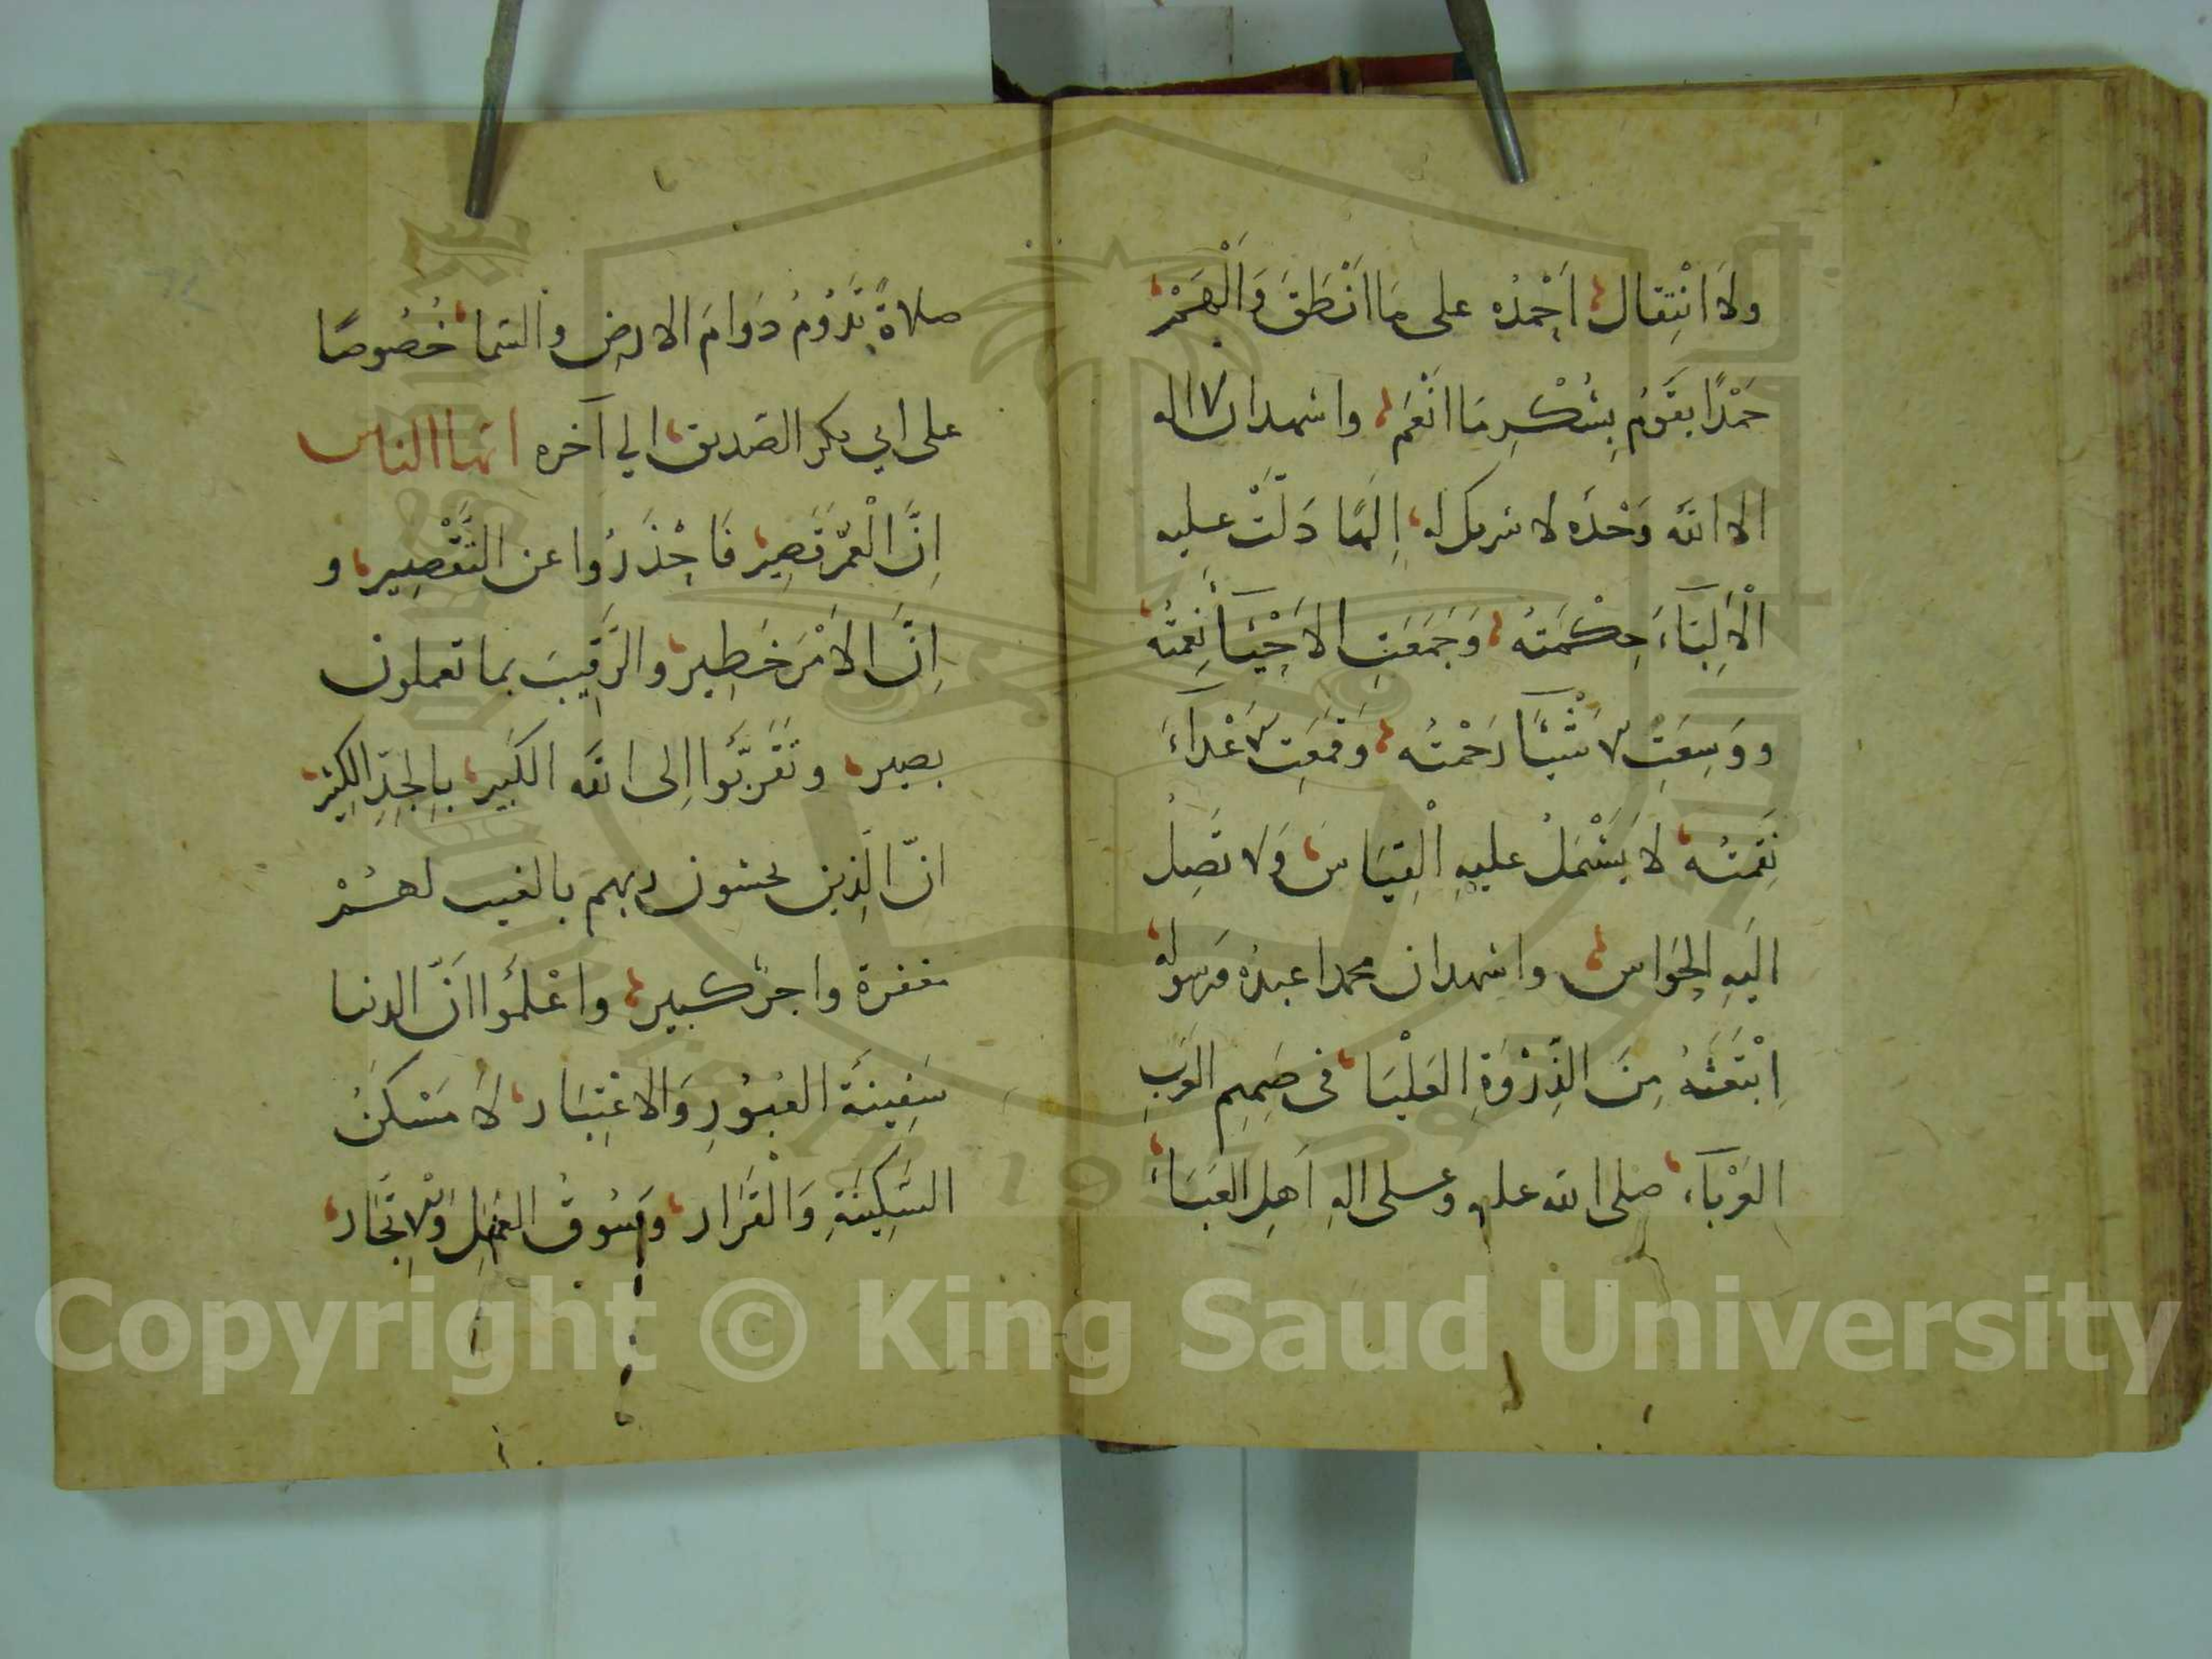 ولَا انْتِقال، اَحْمَدُه على مَا اَنْطَقَ وَاَلْهَمْ،
حَمْدًا يقَوُمُ بِشُكْرِ مَا انْعَم، واشهد ان لا اله
الا الله وَحْدَه لا شريك له، اِلٰهًا دَلَّتْ عليه
الْاَلِبّآءَ حِكْمَتهُ، وَجَمَعَتِ الاَحْيَآ نِعمتُه،
ووَسِعَتْ الاَشْيَآ رَحْمتُه، وَقَمَعَتِ الاَعْدآءَ
نِقمَتُه، لا يَشْمَلُ عليهِ الْقِيَاسَ، وَلا تَصِلُ
اليَهِ الحَوَاس، واشهد ان محمدا عبدُه ورَسوله،
اِبْتَعَثَهُ مِنَ الذِّرْوَةِ العَلْيَا، فى صَمِيمِ العَرَبِ
العَرْبَآء، صلى الله عليه وعلى الهِ اَهلِ العَبَاءَ،
صلاةً تَدُوُمُ دَوَامَ الارض والسَّمَا، خُصُوصًا
على ابي بكر الصَديق، الي آخره ايّها الناس
اِنَّ الْعُمَّرَ قَصِيرْ، فَاحْذَرُوا عن التَّقْصِيير، و
اِنَّ الاَمْرَ خَطِيرْ، والرَّقِيبَ بما تعملون
بصير، وتَقَرَّبُوا اِلى الله الكَبير، بِالجِدِّ الكِثيرْ،
انّ الَّذِين يخشون ربهم بالغيب لهُمْ
مغفرة واجرٌ كبير، واعْلَمُوا اَنّ الدنيا
سَفِينَة العُبُوُرِ وَالاعْتِبَار، لَا مَسْكَنُ
السَّكِينَةِ وَالْقَرَار، وَسُوقُ العَمَلِ وَالاتِّجَار،
Copyright © King Saud University